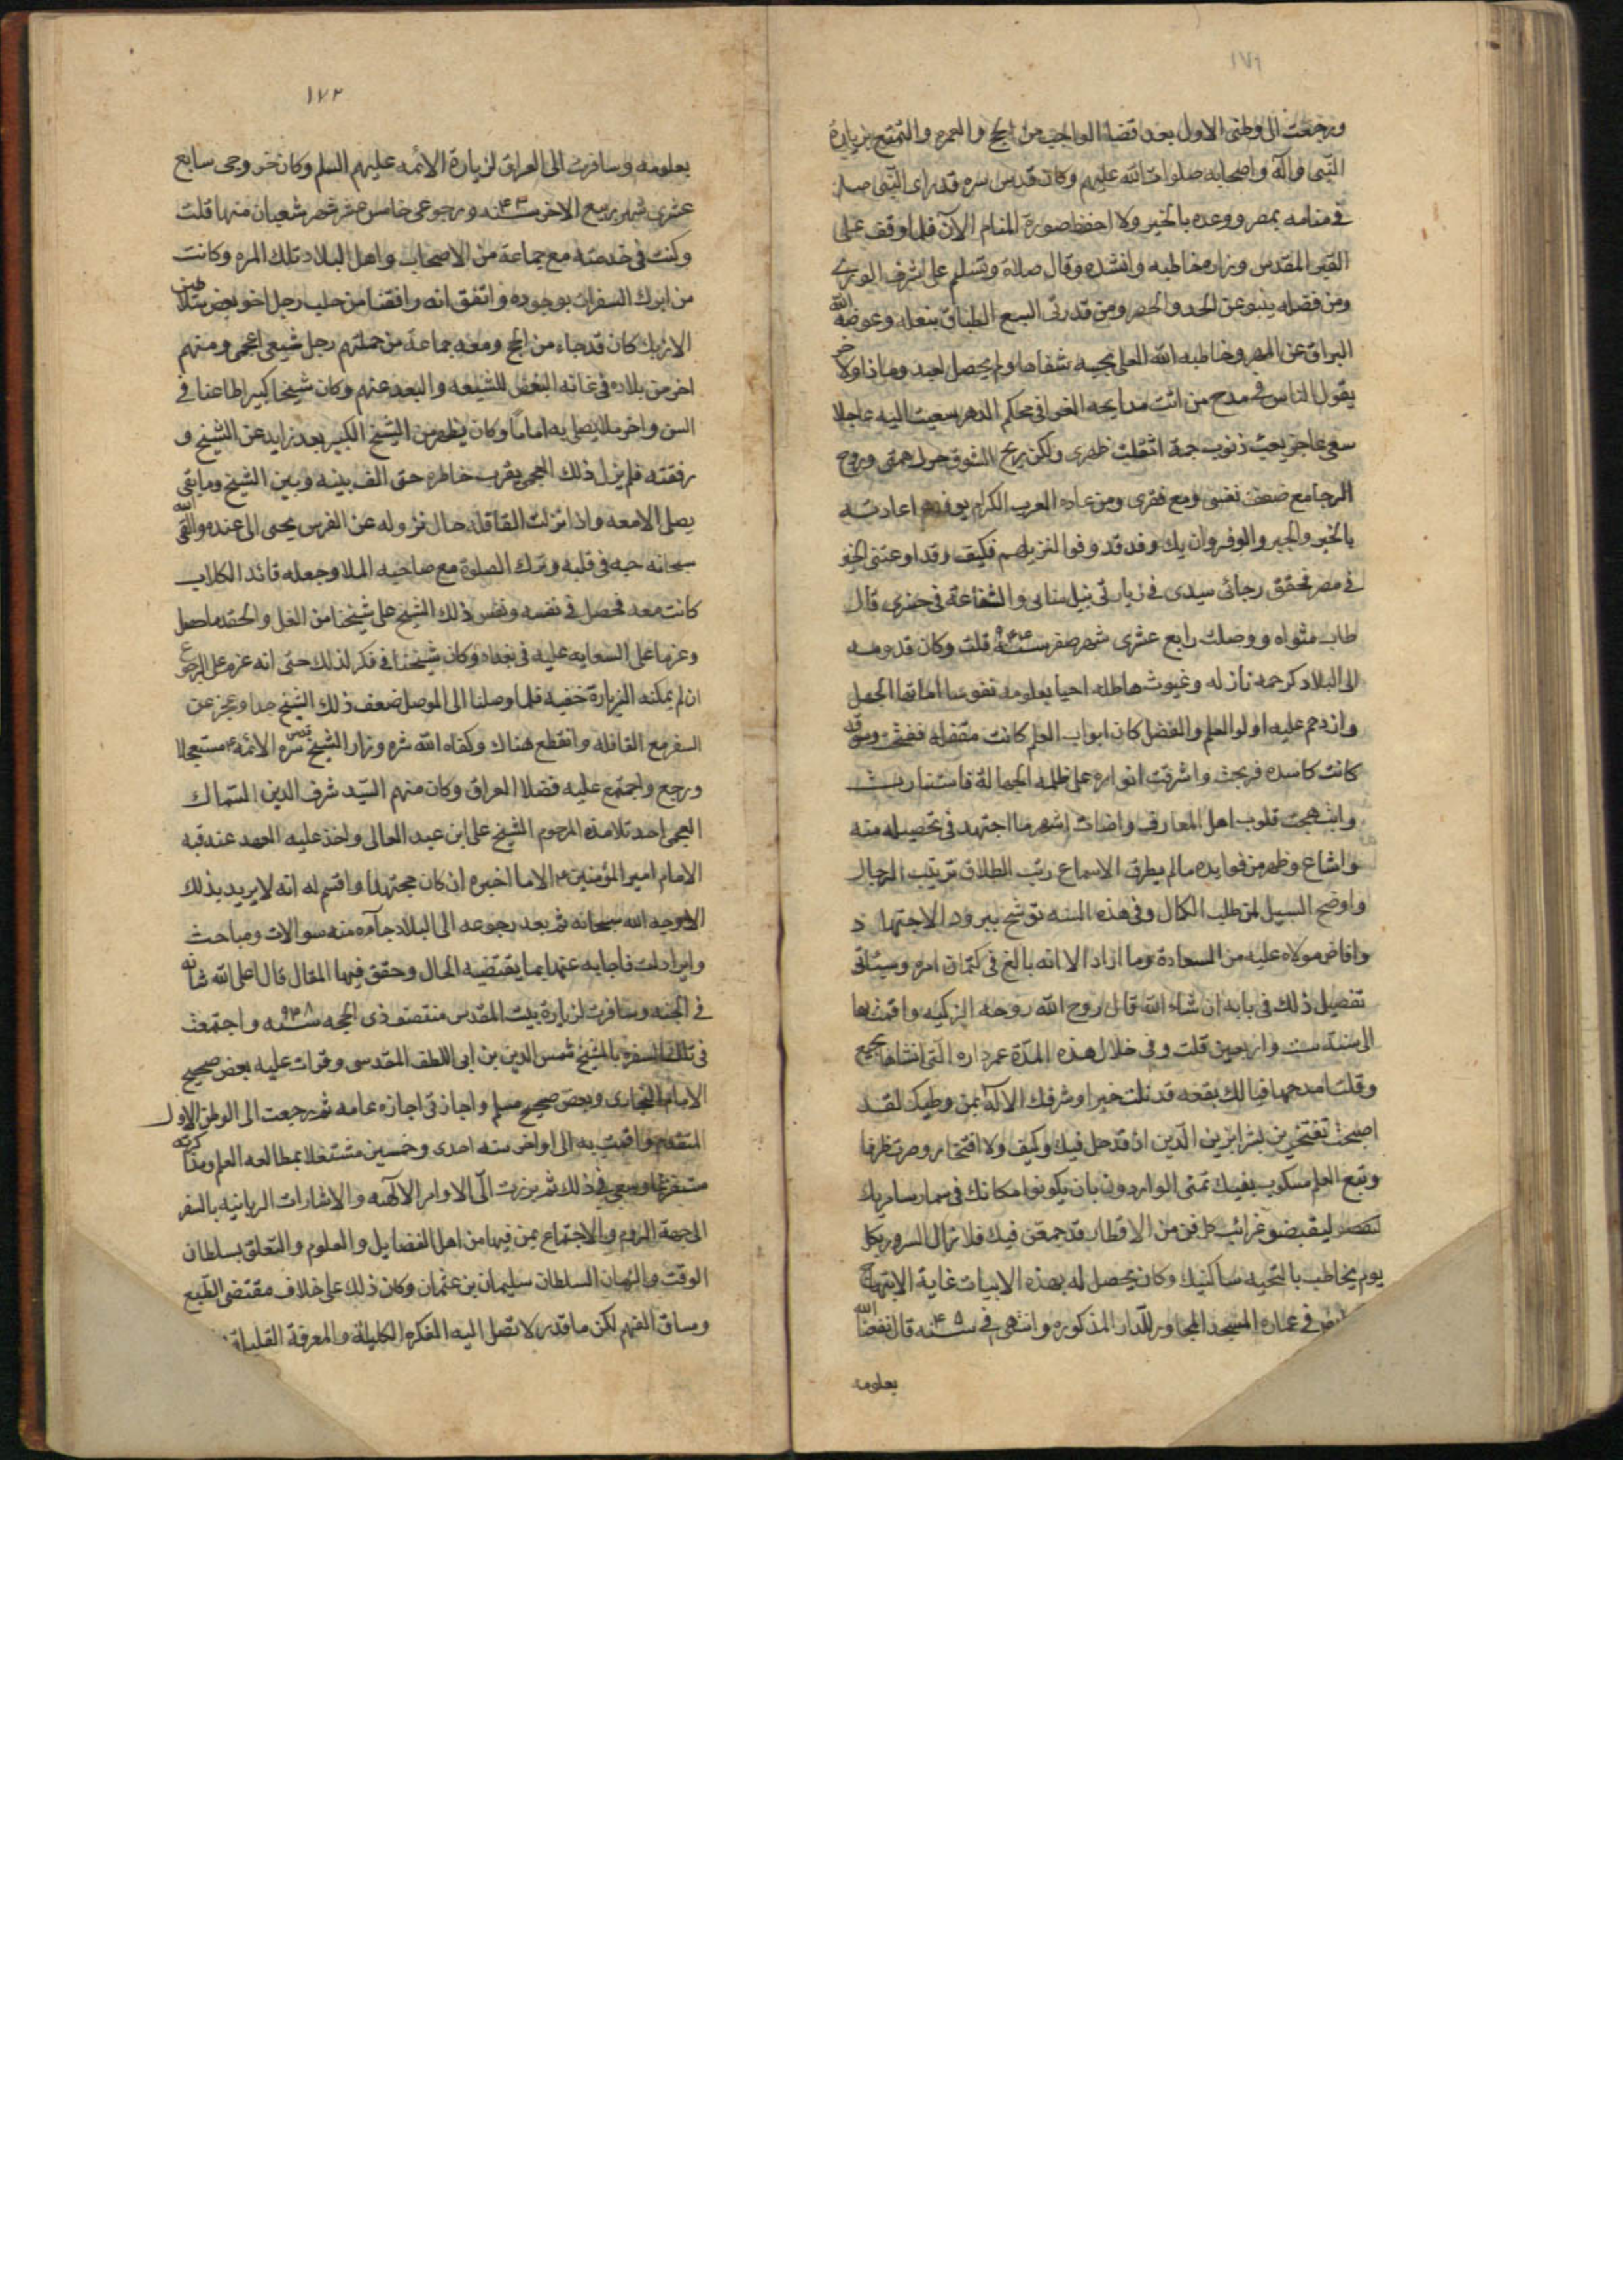 ١٧١
ورجعت الى وطنى الاول بعد قضاء الواجب من الحج والعمره والتمتع بزيارة
النبى وآله واصحابه صلوات الله عليهم وكان قدس سره قد راى النبى صلى
فى منامه بمصر ووعده بالخير ولا احفظ صورة المنام الآن فلما وقف على
القبر المقدس وزاره خاطبه وانشده وقال صلاة وتسليم على اشرف الورى
ومن فضله ينبو عن الحد والحصر ومن قد رقى السبع الطباق بنعله وعوضه الله
البراق عن المهر وخاطبه الله العلى بحبه شفاها ولم يحصل لعبد وماذا ولا حر
يقول الناس فى مدح من اتت مدايحه الغرا فى محكم الذكر سعيت اليه عاجلا
سعى عاجز بعبء ذنوب جمة اثقلت ظهرى ولكن ريح الشوق حرك همتى وروح
الرجا مع ضعف نفسى ومع فقرى ومن عادة العرب الكرام بوفدهم اعادته
بالخير والحبر والوفر وان يك وفد قد وفوا لنزيلهم فكيف وقد اوعدتنى الخير
فى مصر فحقق رجائى سيدى فى زيارتى بنيل منايى والشفاعة فى حشرى قال
طاب مثواه ووصلت رابع عشرى شهر صفر سنة ٩٤٤ قلت وكان قدومه
الى البلاد كرحمة نازله وغيوث هاطله احيا بعلومه نفوسا اماتها الجهل
وازدحم عليه اولو العلم والفضل كان ابواب العلم كانت مقفله ففتحت وسوقه
كانت كاسده فربحت واشرقت انواره على ظلمه الجهالة فاستنارت
وابتهجت قلوب اهل المعارف واضاءت اشهر ما اجتهد فى تحصيله منه
واشاع وظهر من فوايده ما لم يطرق الاسماع رتب الطلاب ترتيب الرجال
واوضح السبيل لمن طلب الكمال وفى هذه السنه توشح ببرود الاجتهاد
وافاض مولاه عليه من السعادة وما ازاد الا انه بالغ فى كتمان امره وسيتاتى
تفصيل ذلك فى بابه ان شاء الله قال روح الله روحه الزكيه واقمت بها
الى سنة ست واربعين قلت وفى خلال هذه المدة عمر داره التى انشاها بجبع
وقلت امدحها فيالك بقعه قد نلت خيرا وشرفك الاله بمن وطيك لقد
اصبحت تفتخرين بشرا بزين الدين اذ قد حل فيك وكيف ولا افتخار وصرت ظرفا
ونبع العلم مسكوب بفيك تمنى الواردون بان يكونوا مكانك فى
ليقبضو غرائب كل فن من الاقطار قد جمعن فيك فلا زال السرور بكل
يوم يخاطب بالتحيه ساكنيك وكان يحصل له بهذه الابيات غاية الابتهاج
فى عمارة المسجد المجاور للدار المذكوره وانتهى فى سنه ٤٨ قال نفعنا الله
بعلومه
١٧٢
بعلومه وسافرت الى العراق لزيارة الائمه عليهم السلم وكان خروجى سابع
عشرى شهر ربيع الاخر سنه ٤٦ ورجوعى خامس عشر شهر شعبان منها قلت
وكنت فى خدمته مع جماعة من الاصحاب واهل البلاد تلك المره وكانت
من ابرك السفرات بوجوده واتفق انه رافقنا من حلب رجل اخو بعض سلاطين
الازبك كان قد جاء من الحج ومعه جماعة من جملتهم رجل شيعى اعجمى ومنهم
اخر من بلاده فى غاية البغض للشيعه والبعد عنهم وكان شيخا كبيرا طاعنا فى
السن واخر ملا يصلى به اماما وكان يظهر من الشيخ الكبير بعد زايد عن الشيخ و
رفقته فلم يزل ذلك العجمى يقرب خاطره حتى الف بينه وبين الشيخ وما بقى
يصلى الا معه واذا نزلت القافله حال نزوله عن الفرس يجى الى عنده والقى الله
سبحانه حبه فى قلبه وترك الصلوة مع صاحبه الملا وجعله قائد الكلاب
كانت معه فحصل فى نفسه ونفس ذلك الشيخ على شيخنا من الغل والحقد ما حصل
وعزما على السعايه عليه فى بغداد وكان شيخنا فى فكر لذلك حتى انه عزم على الرجوع
ان لم يمكنه الزيارة خفيه فلما وصلنا الى الموصل ضعف ذلك الشيخ جدا وعجز عن
السفر مع القافله وانقطع هناك وكفاه الله شره وزار الشيخ قدس سره الائمه ع مستعجلا
ورجع واجتمع عليه فضلا العراق وكان منهم السيد شرف الدين السماك
العجمى احد تلامذه المرحوم الشيخ على ابن عبد العالى واخذ عليه العهد عند قبه
الامام امير المؤمنين ع الا ما اخبره ان كان مجتهدا واقسم له انه لا يريد بذلك
الا وجه الله سبحانه ثم بعد رجوعه الى البلاد جآءه منه سوالات ومباحث
وايرادات فاجابه عنها بما يقتضيه الحال وحقق فيها المقال قال اعلى الله شانه
فى الجنه وسافرت لزيارة بيت المقدس منتصف ذى الحجه سنه ٩٤٨ واجتمعت
فى تلك السفره بالشيخ شمس الدين بن ابى اللطف المقدسى وقرات عليه بعض صحيح
الامام البخارى وبعض صحيح مسلم واجازنى اجازه عامه ثم رجعت الى الوطن الاول
المتقدم واقمت به الى اواخر سنه احدى وخمسين مشتغلا بمطالعه العلم ومذاكرته
مستفرغا وسعى فى ذلك ثم برزت الىّ الاوامر الالهيه والاشارات الربانيه بالسفر
الى جهة الروم والاجتماع بمن فيها من اهل الفضايل والعلوم والتعلق بسلطان
الوقت والزمان السلطان سليمان بن عثمان وكان ذلك على خلاف مقتضى الطبع
وساق الفهم لكن ما قدر لا تصل اليه الفكره الكليلة والمعرفة القليلة